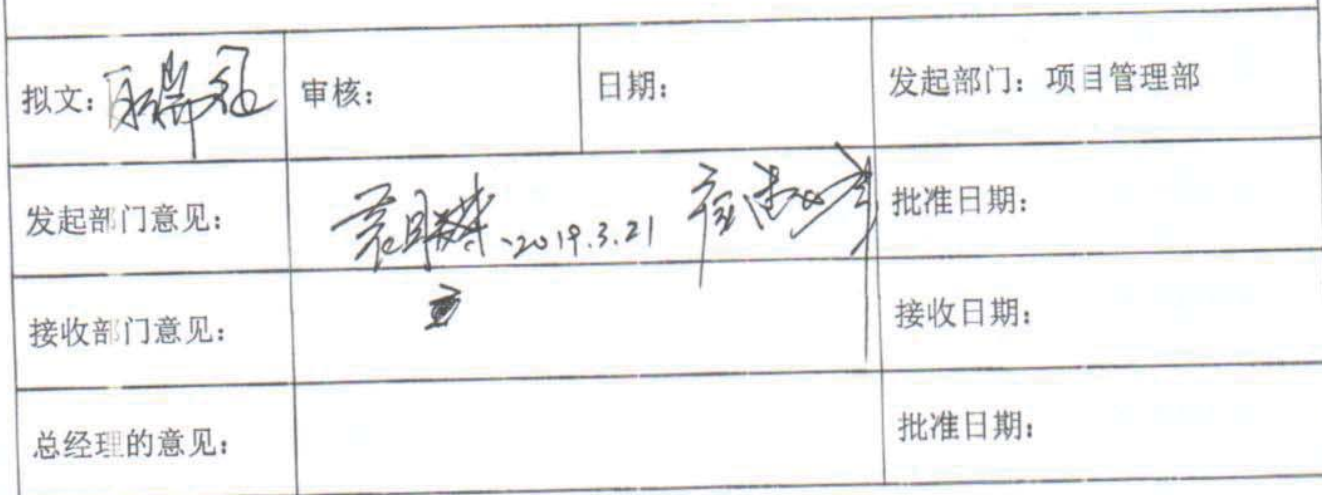 拟文： 审核： 日期： 发起部门：项目管理部
发起部门意见： 2019.3.21 批准日期：
接收部门意见： 接收日期：
总经理的意见： 批准日期：